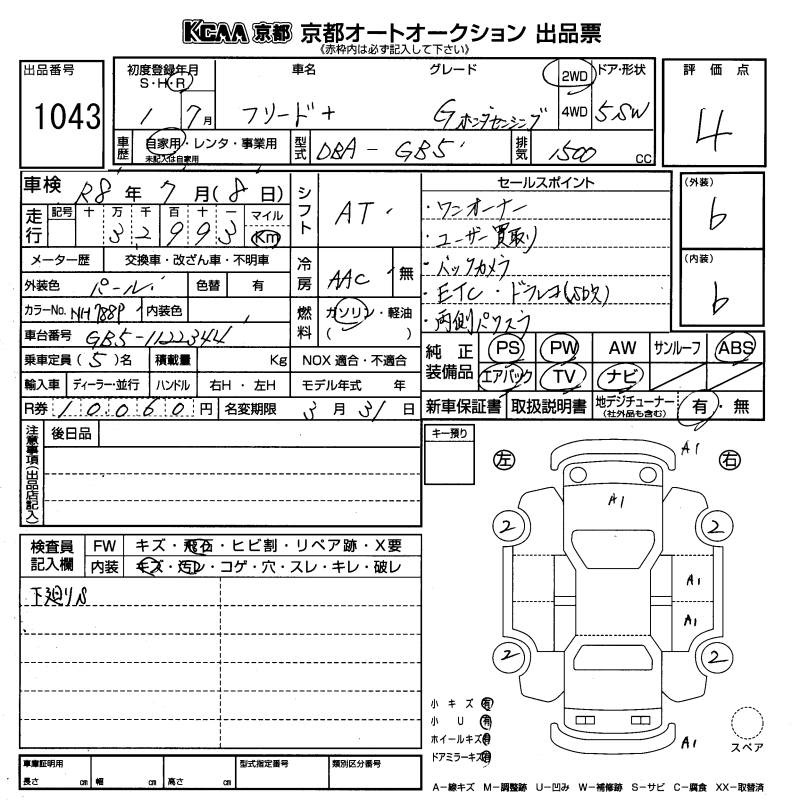 KCAA 京都 京都オートオークション 出品票
《赤枠内は必ず記入して下さい》
出品番号 1043
初度登録年月 車名 グレード 2WD ドア・形状
S・H・R
1 7月 フリード+ G ホンダセンシング 4WD 5SW
車歴 自家用・レンタ・事業用 未記入は自家用 型式 DBA-GB5 排気 1500 CC
評価点
4
(外装)
b
(内装)
b
車検 R8年7月(8日)
走行 記号 十 万 千 百 十 一 マイル
3 2 9 9 3 Km
メーター歴 交換車・改ざん車・不明車
外装色 パール 色替 有
カラーNo. NH788P 内装色
車台番号 GB5-1122344
乗車定員(5)名 積載量 Kg
輸入車 ディーラー・並行 ハンドル 右H・左H
R券 10060円 名変期限 3月31日
シフト AT
冷房 AAC 無
燃料 ガソリン・軽油
( )
NOX 適合・不適合
モデル年式 年
セールスポイント
・ワンオーナー
・ユーザー買取り
・バックカメラ
・ETC・ドラレコ(SD欠)
・両側パワスラ
純正装備品 PS PW AW サンルーフ ABS
エアバック TV ナビ
新車保証書 取扱説明書 地デジチューナー (社外品も含む) 有・無
注意事項(出品店記入)
後日品
キー預り
検査員記入欄 FW キズ・飛石・ヒビ割・リペア跡・X要
内装 キズ・汚レ・コゲ・穴・スレ・キレ・破レ
下廻りS
左 右
A1
A1
2 2
A1
A1
2 2
A1
小キズ 有
小U 有
ホイールキズ 有
ドアミラーキズ 有
スペア
車庫証明用 型式指定番号 類別区分番号
長さ cm 幅 cm 高さ cm
A-線キズ M-調整跡 U-凹み W-補修跡 S-サビ C-腐食 XX-取替済